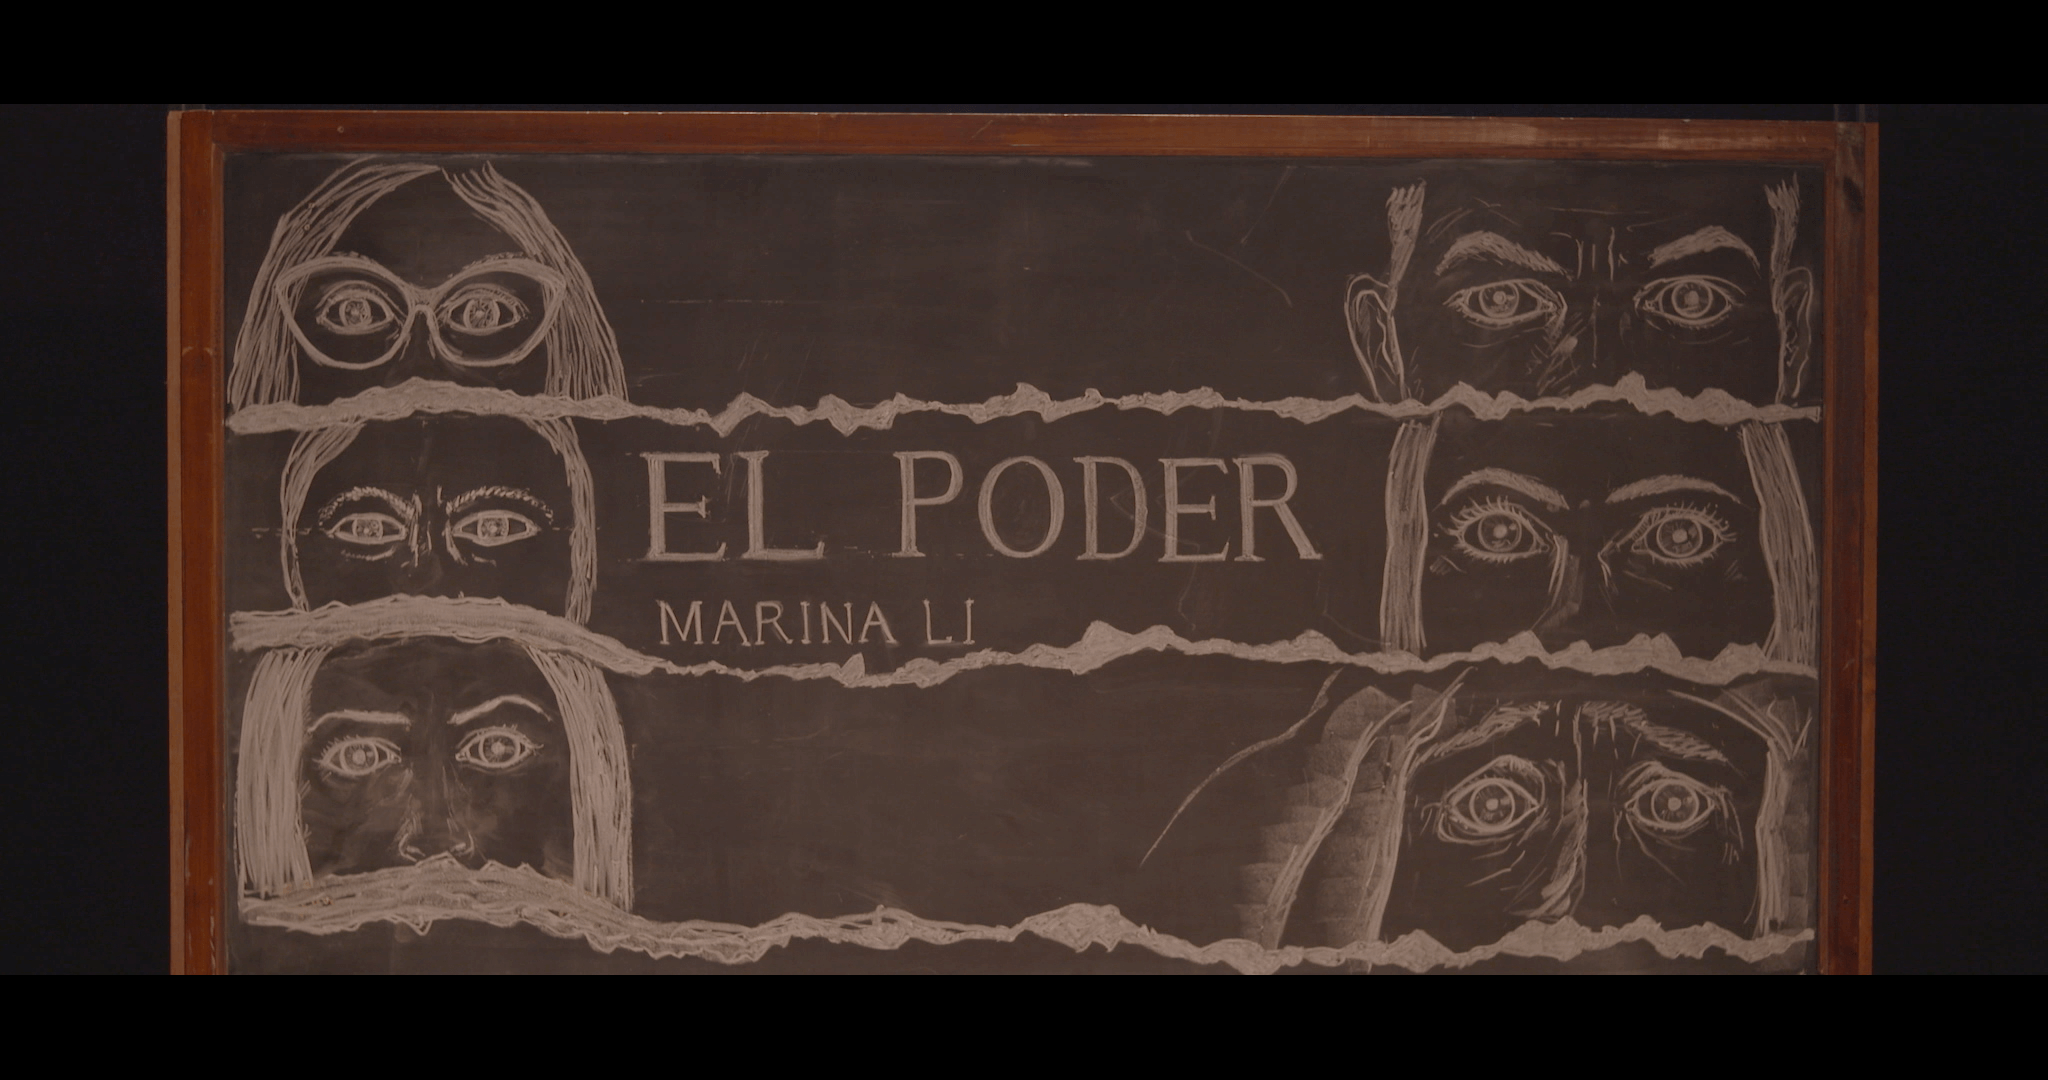 EL PODER
MARINA LI